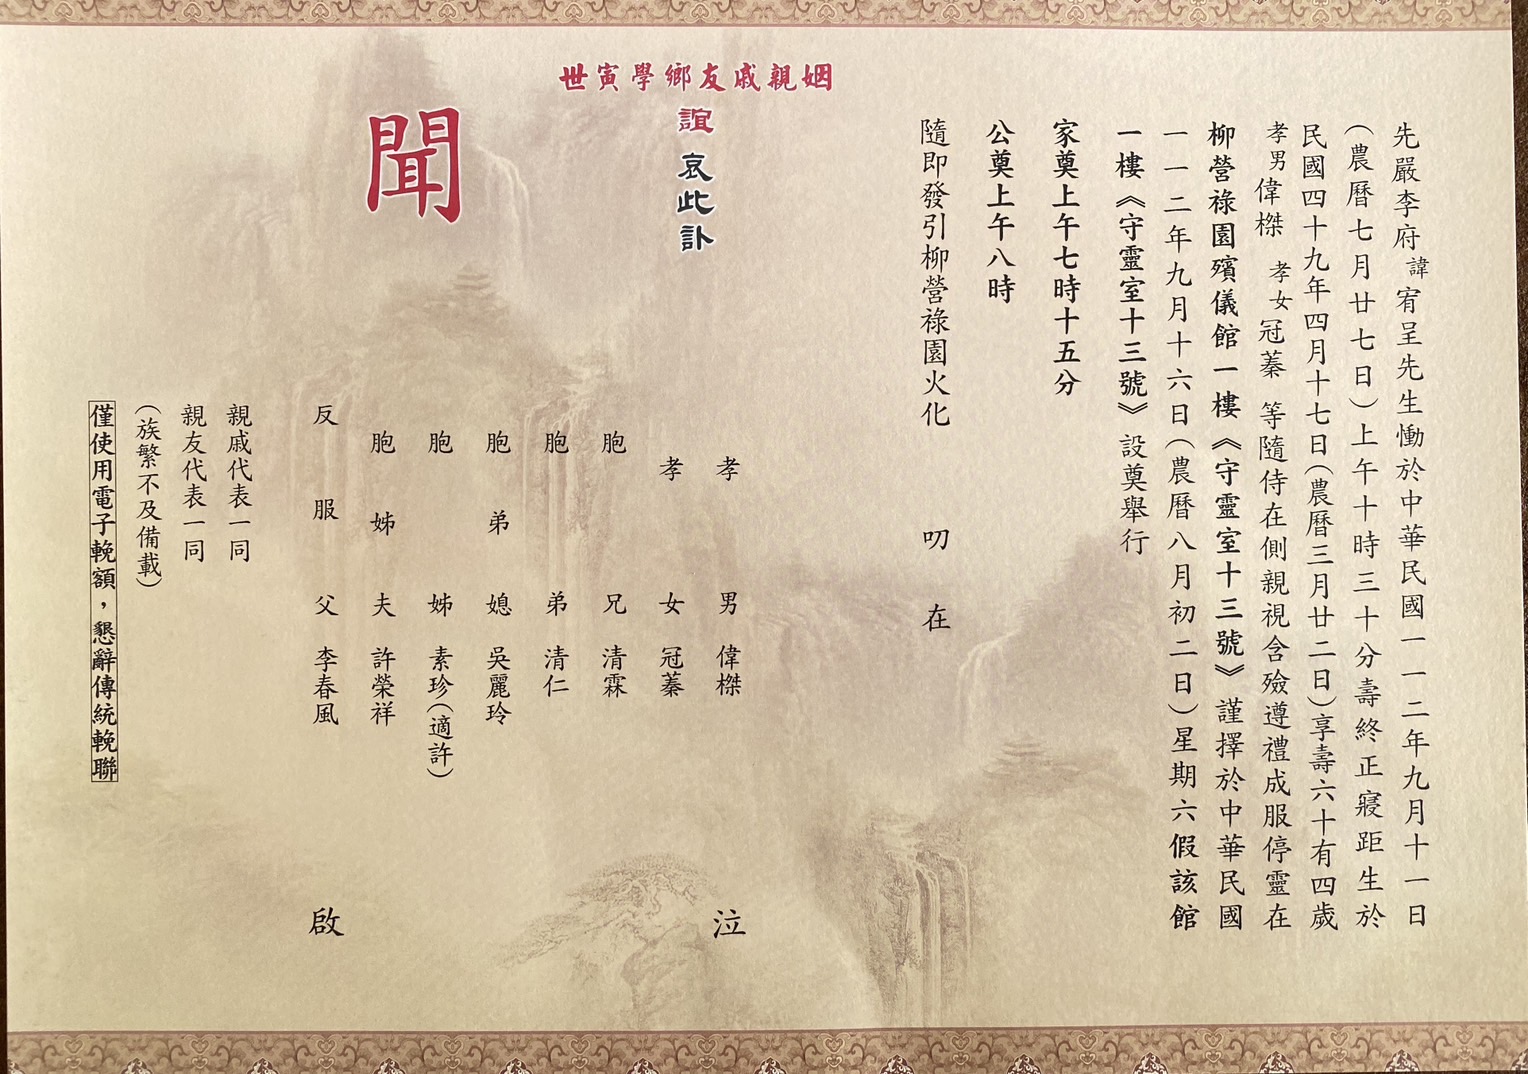 先嚴李府諱宥呈先生慟於中華民國一一二年九月十一日
(農曆七月廿七日)上午十時三十分壽終正寢距生於
民國四十九年四月十七日(農曆三月廿二日)享壽六十有四歲
孝男偉榤 孝女冠蓁 等隨侍在側親視含殮遵禮成服停靈在
柳營祿園殯儀館一樓《守靈室十三號》謹擇於中華民國
一一二年九月十六日(農曆八月初二日)星期六假該館
一樓《守靈室十三號》設奠舉行
家奠上午七時十五分
公奠上午八時
隨即發引柳營祿園火化 叨在
姻親戚友鄉學寅世
誼 哀此訃
聞
孝男 偉榤 泣
孝女 冠蓁
胞兄 清霖
胞弟 清仁
胞弟媳 吳麗玲
胞姊 素珍(適許)
胞姊夫 許榮祥
反服父 李春風 啟
親戚代表一同
親友代表一同
(族繁不及備載)
僅使用電子輓額，懇辭傳統輓聯